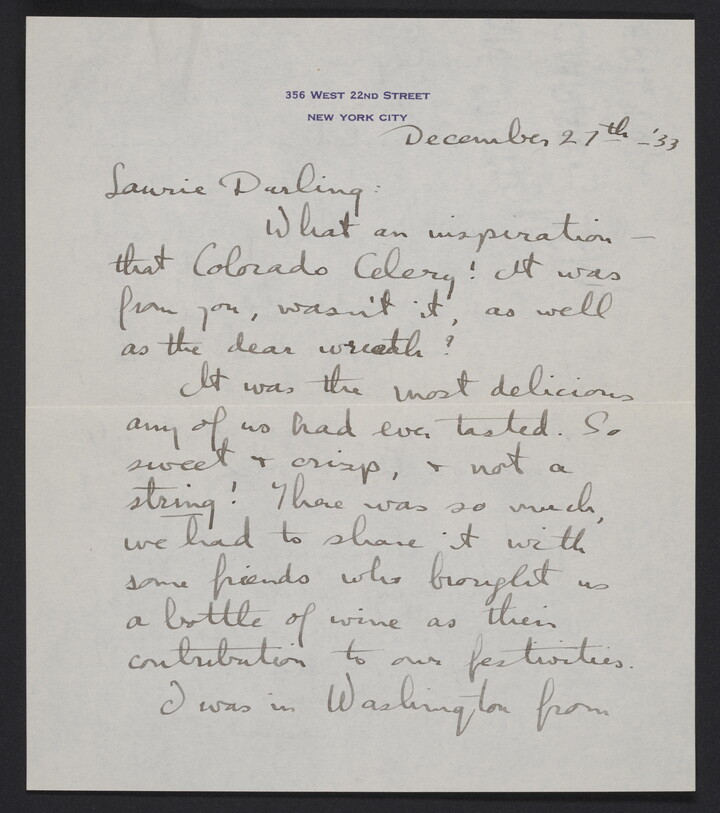 356 WEST 22ND STREET
NEW YORK CITY
December 27th - '33
Laurie Darling:
What an inspiration -
that Colorado Celery! It was
from you, wasn't it, as well
as the dear wreath?
It was the most delicious
any of us had ever tasted. So
sweet + crisp, + not a
string! There was so much,
we had to share it with
some friends who brought us
a bottle of wine as their
contribution to our festivities.
I was in Washington from